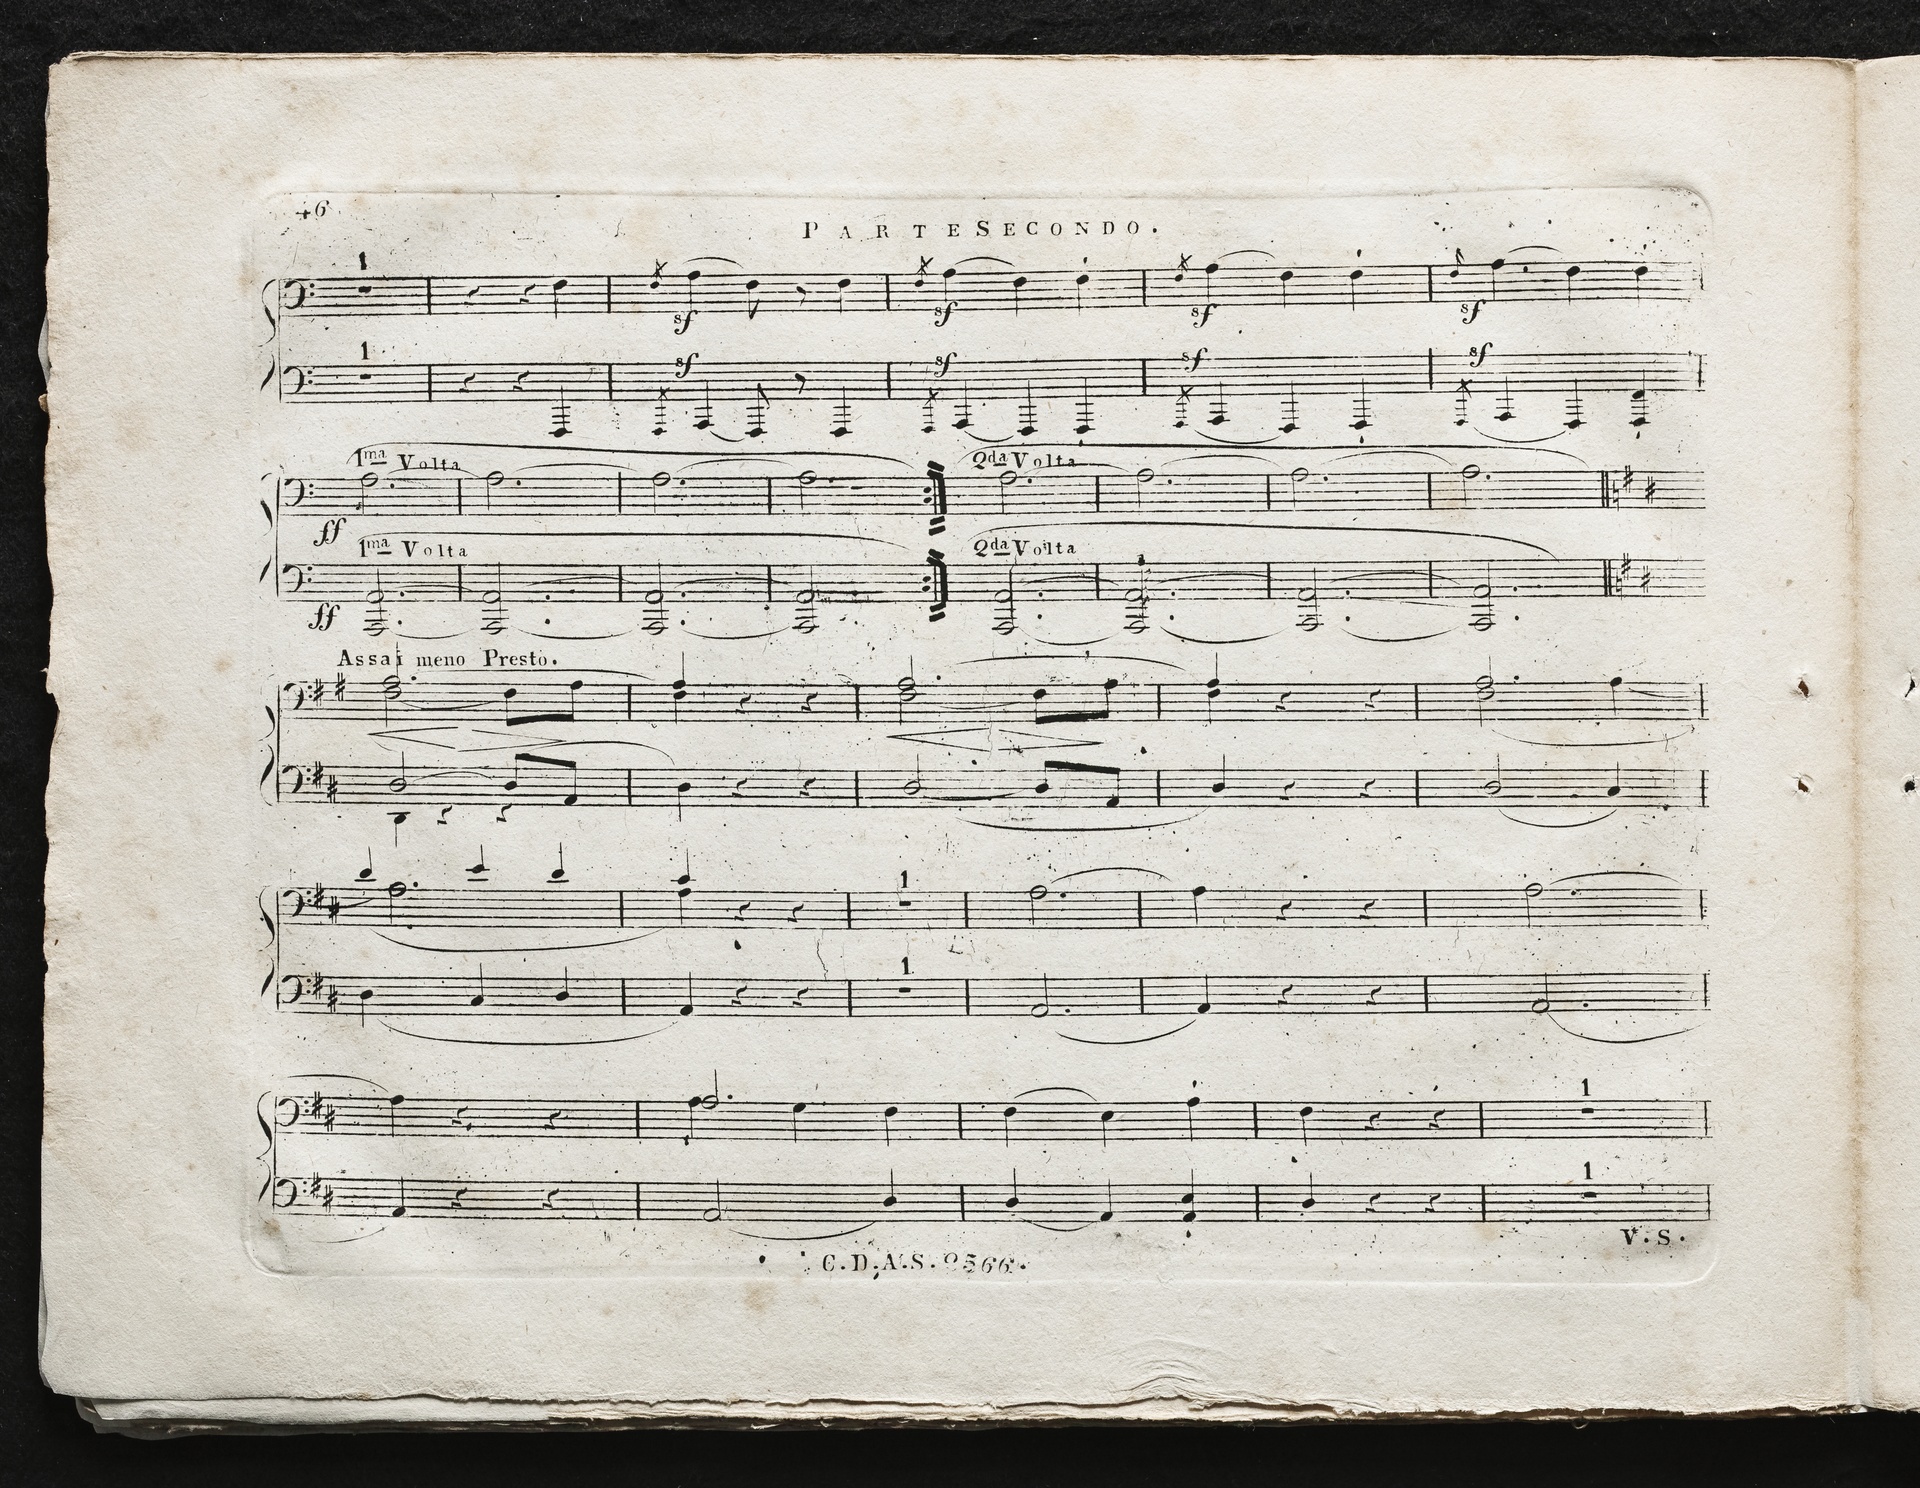 46
PARTE SECONDO.
1
sf sf sf sf
1
sf sf sf sf
1ma Volta 2da Volta
ff
1ma Volta 2da Volta
ff
Assai meno Presto.
1
1
1
1
V.S.
C.D.A.S. 2566.